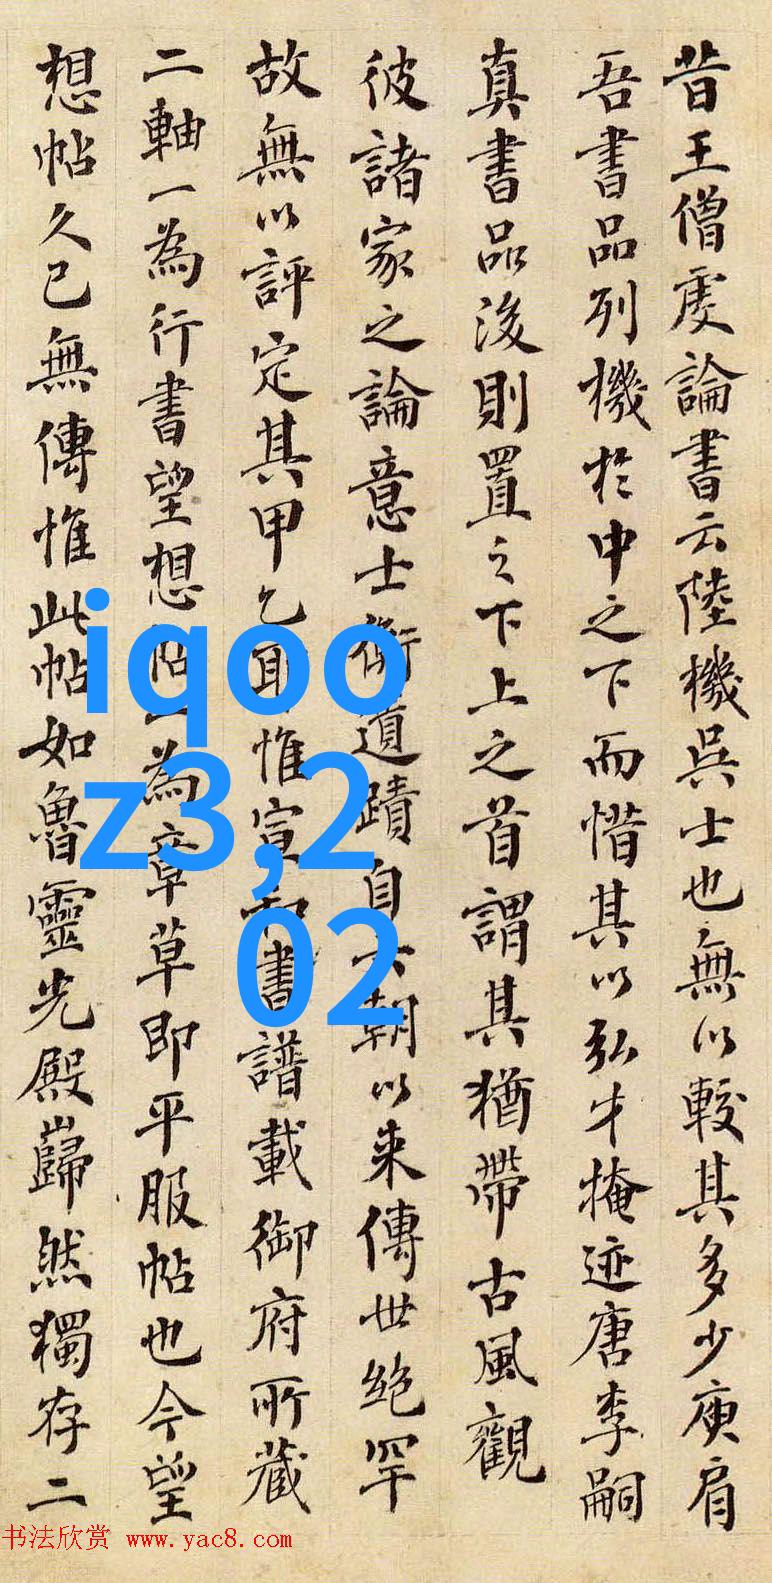 昔王僧虔論書云陸機吳士也無以較其多少庾肩
吾書品列機於中之下而惜其以弘才掩迹唐李嗣
真書品後則置之下上之首謂其猶帶古風觀
彼諸家之論意士衡道蹟自六朝以来傳世絶罕
故無以評定其甲乙耳惟宣和書譜載御府所藏
二軸一為行書望想帖一為章草即平服帖也今望
想帖久已無傳惟此帖如魯靈光殿巋然獨存二
iqoo
z3,2
02
书法欣赏 www.yac8.com